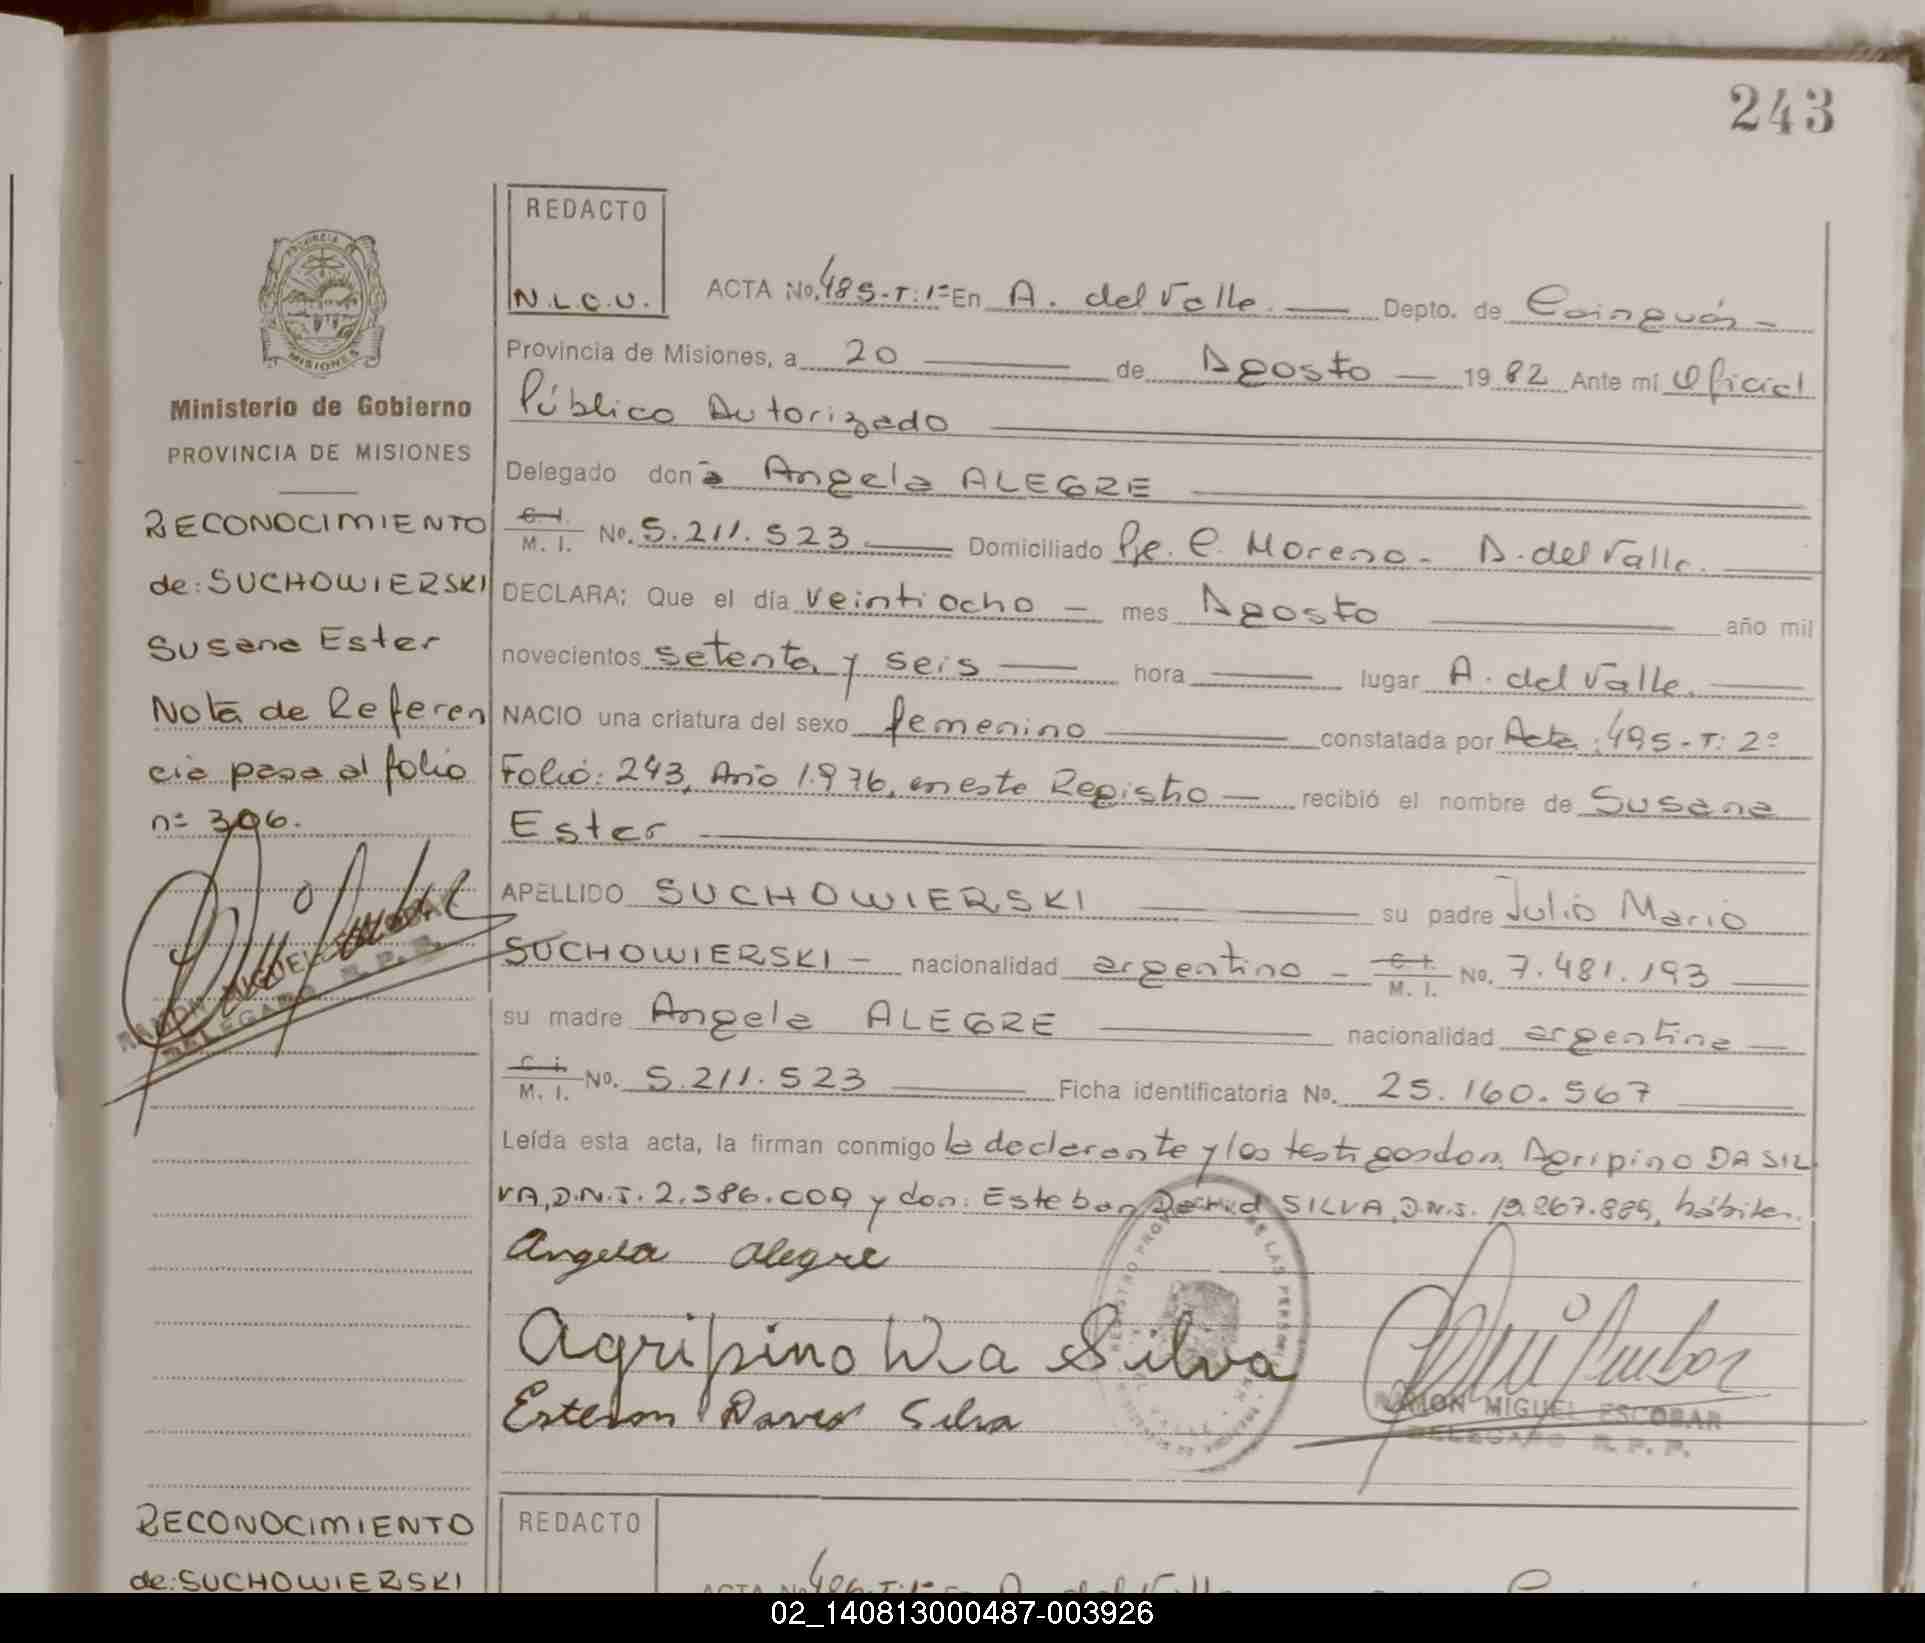 243
REDACTO
N.L.C.U.
ACTA No. 485-T:1º En A. del Valle. Depto. de Cainguás-
Provincia de Misiones, a 20 de Agosto 1982 Ante mí Oficial
Público Autorizado
Delegado doña Angela ALEGRE
C. I.
M. I. No. 5.211.523 Domiciliado Pje. C. Moreno- A. del Valle.
DECLARA: Que el día veintiocho - mes Agosto año mil
novecientos setenta y seis hora lugar A. del Valle.
NACIO una criatura del sexo femenino constatada por Acta: 495-T: 2º
Folio: 243, Año 1.976, en este Registro - recibió el nombre de Susana
Ester
APELLIDO SUCHOWIERSKI su padre Julio Mario
SUCHOWIERSKI - nacionalidad argentino - C. I.
M. I. No. 7.481.193
su madre Angela ALEGRE nacionalidad argentina
C. I.
M. I. No. 5.211.523 Ficha identificatoria No. 25.160.567
Leída esta acta, la firman conmigo la declarante y los testigos don: Agripino DA SIL
VA, D.N.I. 2.586.009 y don: Esteban SILVA, D.N.I. 19.267.889, hábiles.
Angela Alegre
Agripino Da Silva
Esteban Silva
RAMON MIGUEL ESCOBAR
DELEGADO R. P. P.
PROVINCIA DE
MISIONES
Ministerio de Gobierno
PROVINCIA DE MISIONES
RECONOCIMIENTO
de: SUCHOWIERSKI
Susana Ester
Nota de Referen
cia pasa al folio
nº 306.
RAMON MIGUEL ESCOBAR
DELEGADO R. P. P.
RECONOCIMIENTO
de: SUCHOWIERSKI
REDACTO
ACTA No 486-T:1º En A. del Valle
02_140813000487-003926